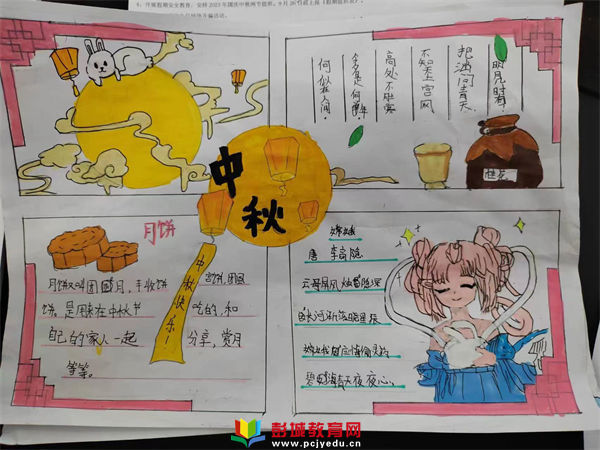 中秋
中秋快乐!
明月几时有?
把酒问青天
不知天上宫
高处不胜寒
何似在人间
桂花
月饼
月饼又叫团圆月、丰收饼
宫饼,团圆
饼,是用来在中秋节
吃的,和
自己的家人一起
分享,赏月
等等。
嫦娥
唐 李商隐
云母屏风烛影深
长河渐落晓星
碧海青天夜夜心。
彭城教育网
www.pcjyedu.cn